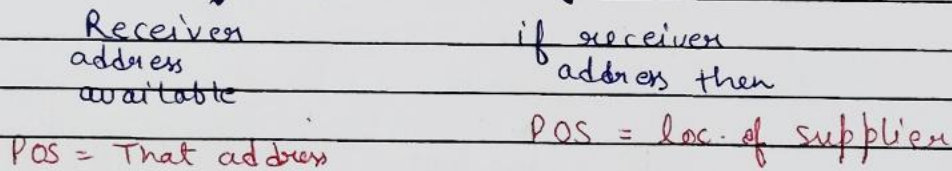 Receiver
address
available
POS = That address
if receiver
address then
POS = loc. of supplier